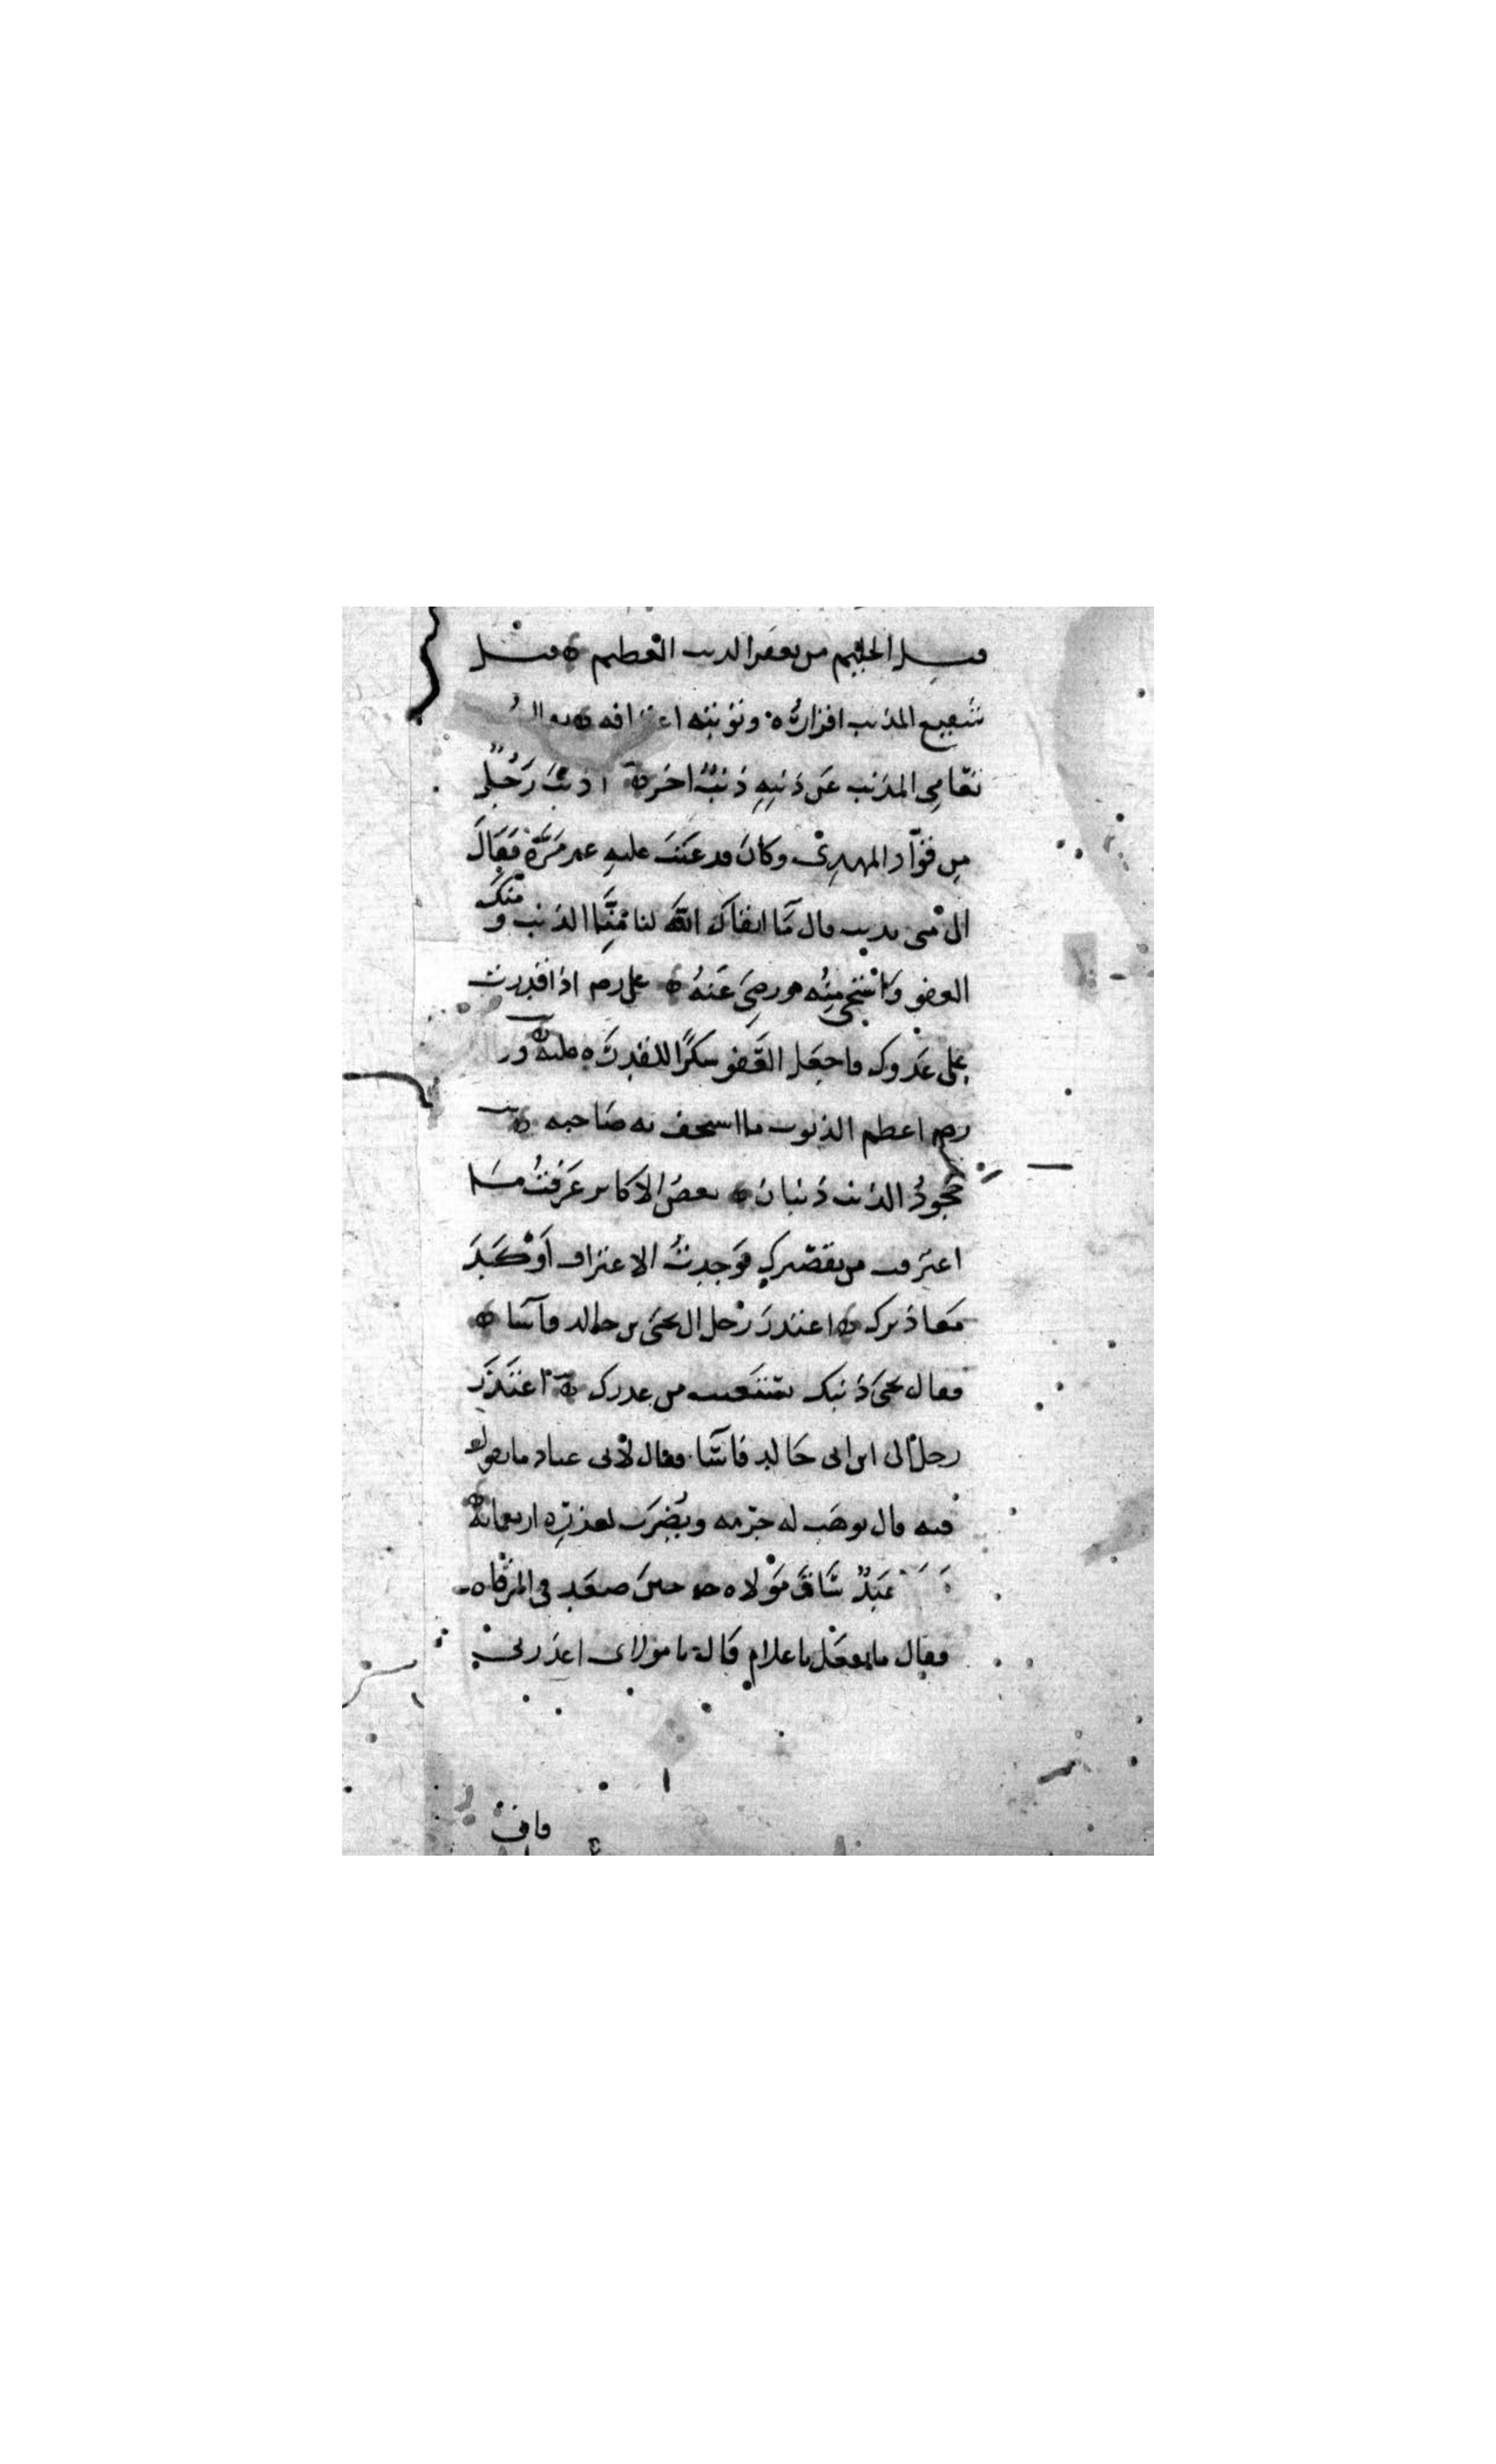 قيل الحليم من يغفر الذنب العظيم ه قيل
شفيع المذنب اقراره وتوبته اعترافه ه يقال
تغامى المذنب عن ذنبه ذنبٌ اخر ه اذنب رَجُلٌ
من قوّاد المهدى وكان قد عتبَ عليه غير مَرّة فقالَ
الى متى تذنب قال ما ابقاك الله لنا منّا الذنب و منك
العفو واستحى منه ورضىَ عنهُ ه على رضه اذا قدرت
على عدوك فاجعل العَفو شكرًا للقدرة عليه ه و
رضه اعظم الذنوب ما استخف به صاحبه ه
جحودُ الذنب ذنبان ه بعض الاكابر عرفتُ مـا
اعترفت من تقصيرك فوجدتُ الاعتراف اوكدَ
معاذيرك ه اعتذرَ رجل الى يحيىَ بن خالد فاسَا ه
فقال يحيىَ ذنبك يستغيث من عذرك ه اعتذرَ
رجل الى ابن ابى خالد فاسَا فقال لأبى عباد ما تقول
فيه قال يوهب له جرمه ويُضرَب لعذره اربعمائة
عَبدٌ سَاقَ مَولاه حينَ صعَد فى المرقاه
فقال ما تفعل يا غلام قال يا مولاى اعذرنى
فانى